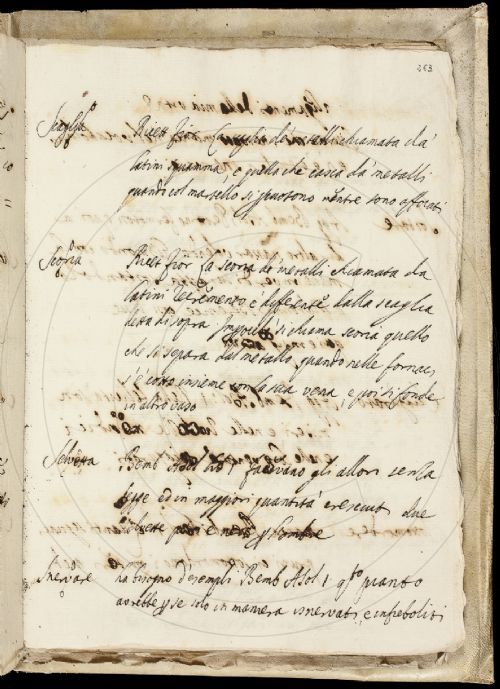 253
Scaglia Ricet Fior La scaglia de' metalli chiamata da
latini squamma, e quella che casca da' metalli
quando col martello si percotono mentre sono affocati
Scoria Ricet Fior la scoria de' metalli chiamata da
latini e differente dalla scaglia
detta di sopra si chiama scoria quello
che si separa dal metallo, quando nelle fornaci
s'è cotto insieme con la sua vena, e poi si fonde
in altro vaso
Selvetta Bemb Asol facevano gli allori senza
legge ed in maggior quantità cresciuti due
selvette pari e nere
Snervare ha bisogno d'esempli Bemb Asol 1 quanto
avrebbe se solo in maniera snervati, e infieboliti